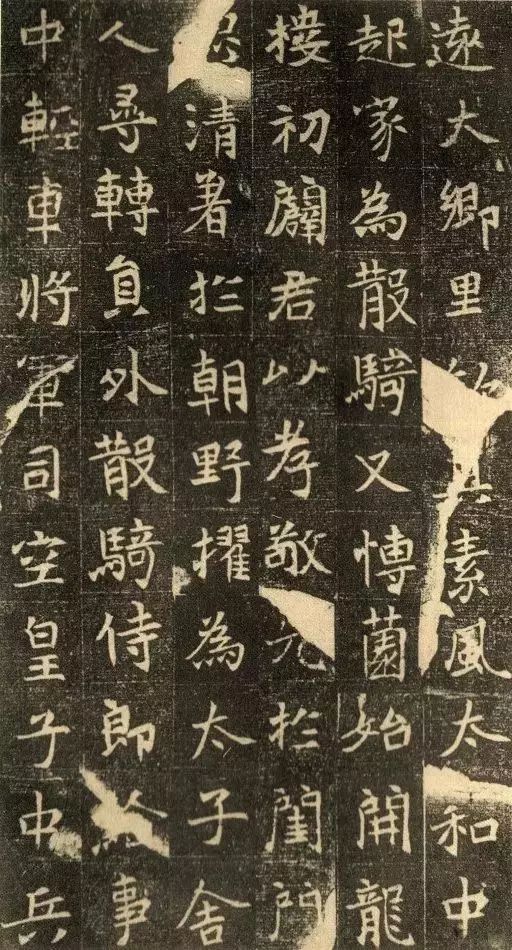 遠大鄉里其素風太和中
起家為散騎又愽薗始開龍
樓初闢君以孝敬光扵閨門
清著扵朝野擢為太子舍
人尋轉員外散騎侍郎給事
中輕車將軍司空皇子中兵